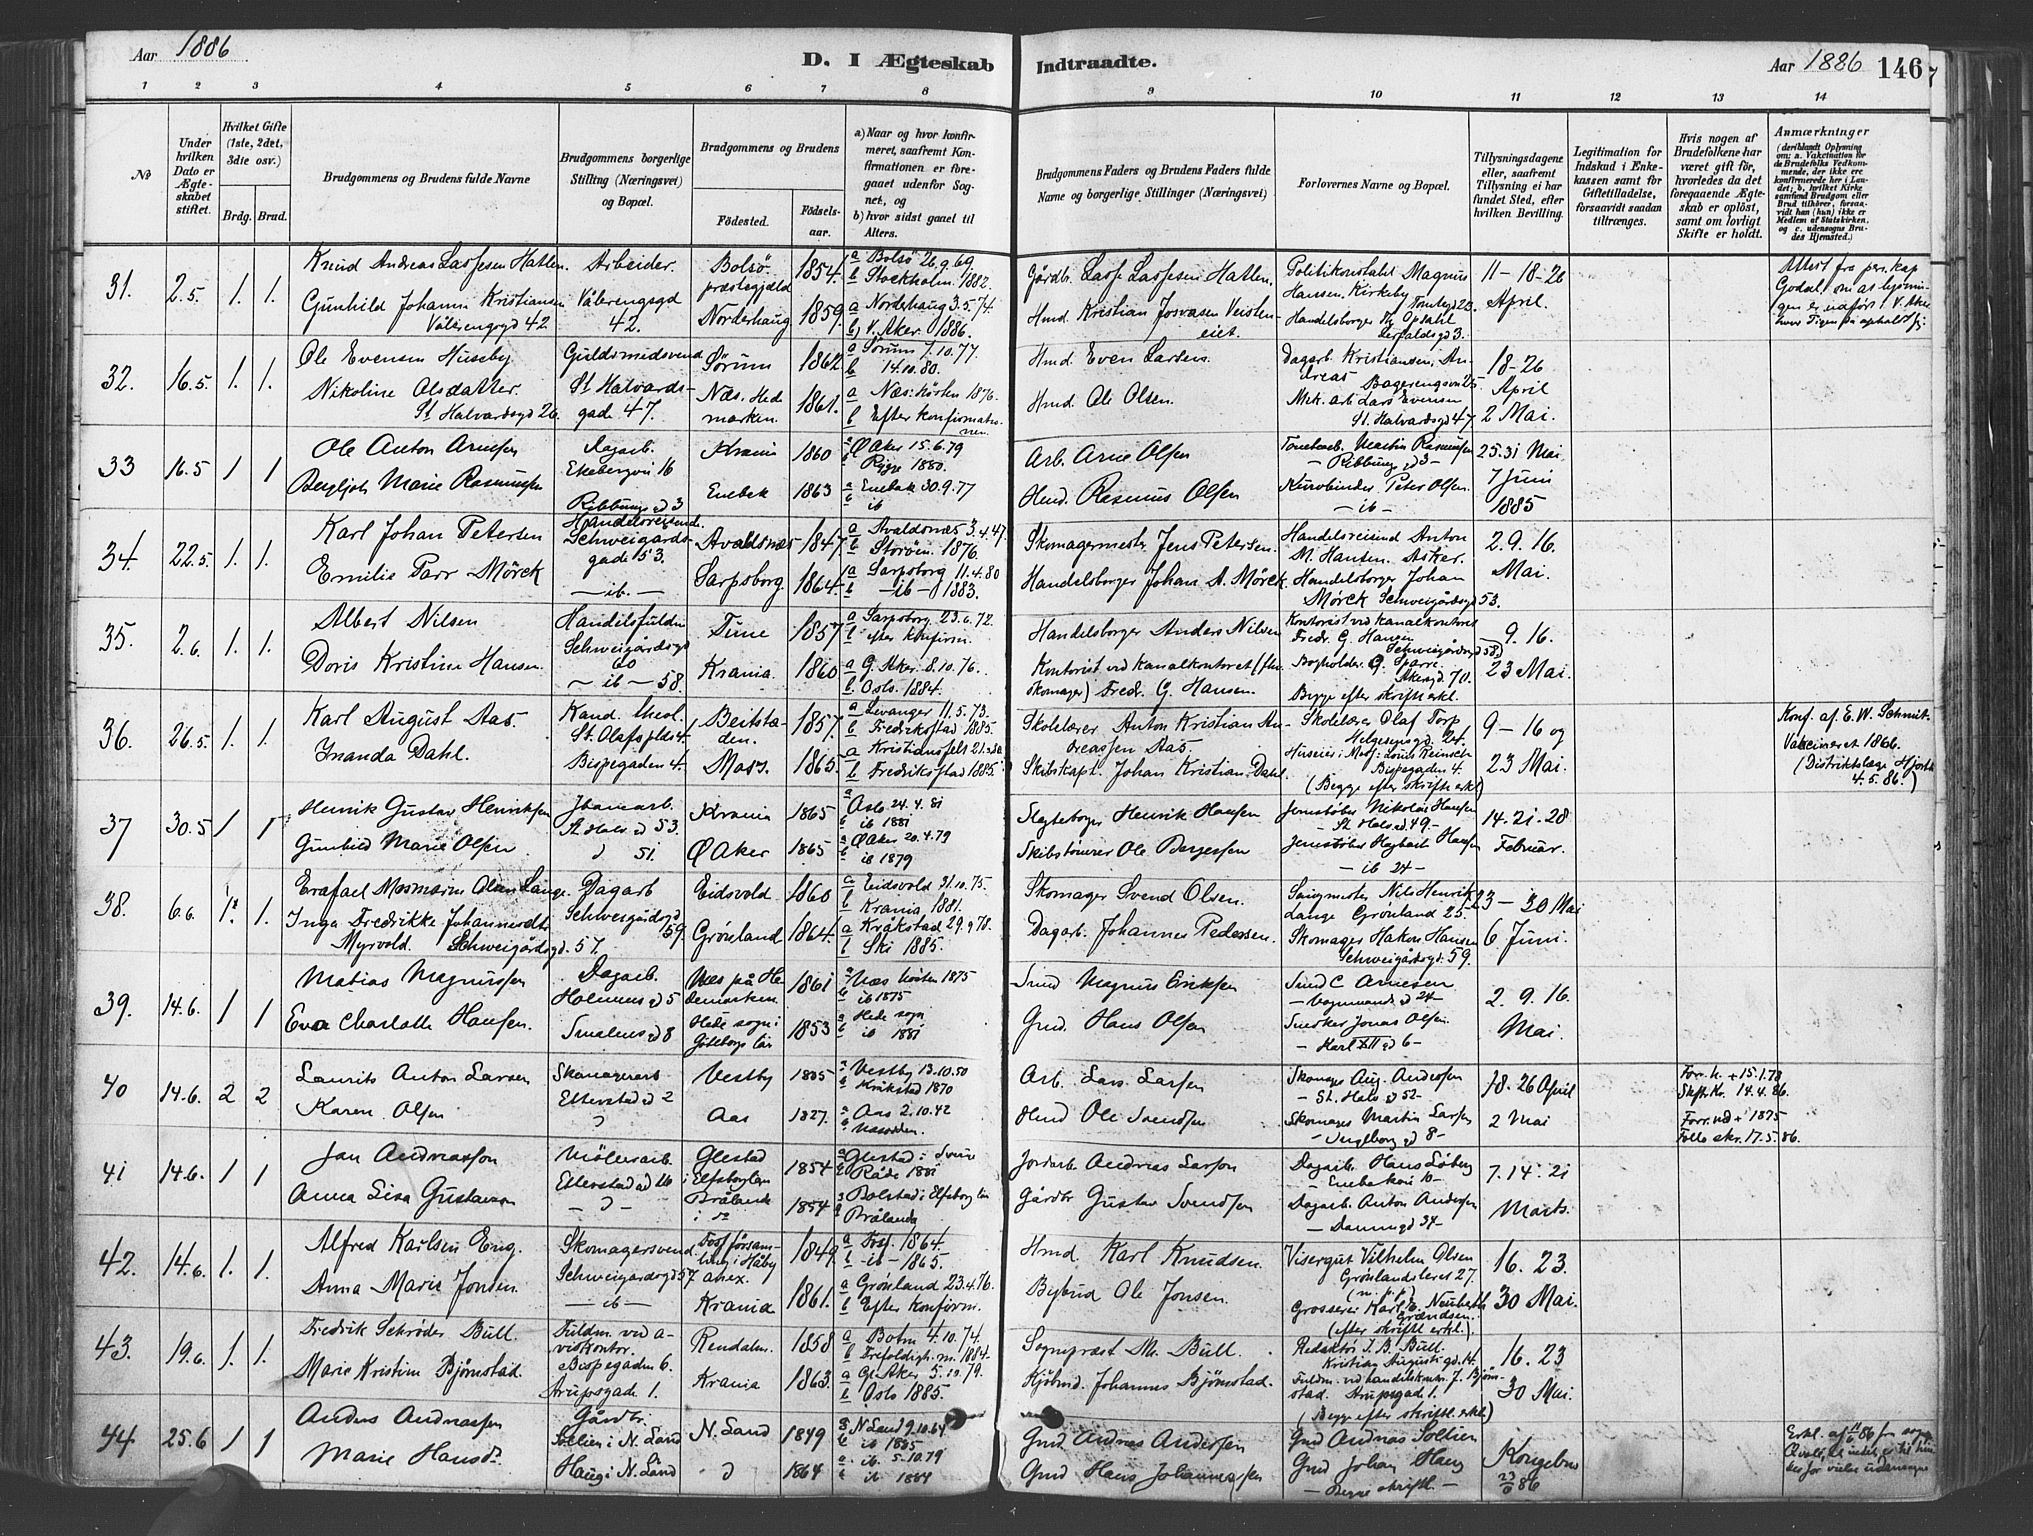 Aar 1886 D. I Ægteskab Indtraadte. Aar 1886 146
1 2 3 4 5 6 7 8 9 10 11 12 13 14
No
Under hvilken Dato er Ægteskabet stiftet.
Hvilket Gifte (1ste, 2det, 3die osv.)
Brdg. Brud.
Brudgommens og Brudens fulde Navne
Brudgommens borgerlige Stilling (Næringsvei) og Bopæl.
Brudgommens og Brudens
Fødested.
Fødselsaar.
a) Naar og hvor konfirmeret, saafremt Konfirmationen er foregaaet udenfor Sognet, og
b) hvor sidst gaaet til Alters.
Brudgommens Faders og Brudens Faders fulde Navne og borgerlige Stillinger (Næringsvei)
Forlovernes Navne og Bopæl.
Tillysningsdagene eller, saafremt Tillysning ei har fundet Sted, efter hvilken Bevilling.
Legitimation for Indskud i Enkekassen samt for Giftetilladelse, forsaavidt saadan tiltrænges.
Hvis nogen af Brudefolkene har været gift før, hvorledes da det foregaaende Ægteskab er opløst, samt om lovligt Skifte er holdt.
Anmærkninger
(deriblandt Oplysning om: a. Vakcination for de Brudefolks Vedkommende, der ikke ere konfirmerede her i Landet; b. hvilket Kirkesamfund Brudgom eller Brud tilhører, forsaavidt han (hun) ikke er Medlem af Statskirken, og c. udensogns Brudes Hjemsted.)
31. 2.5. 1. 1.
Knud Andreas Lassesen Hatlen.
Gunhild Johanne Kristiansen
Vålerengsgd 42.
Arbeider.
Vålerengsgd 42.
Bolsø præstegjæld 1854.
Norderhaug 1859.
a Bolsø 26.9.69
b Stockholm 1882.
a Norderhaug 3.5.74.
b V. Aker. 1886.
Gårdbr. Lasse Lassesen Hatlen.
Hmd. Kristian Josvasen Veisteneiet.
Politikonstabel Magnus Hansen. Kirkeby
Handelsborger
11-18-26 April.
32. 16.5. 1. 1.
Ole Evensen Huseby
Nikoline Olsdatter.
St Halvardsgd 26.
Guldsmedsvend
St Halvardsgade 47.
Sørum 1862.
Næs. Hedmarken. 1861.
a Sørum 7.10.77.
b 14.10.80.
a Næs: hösten 1876.
b Efter konfirmationen.
Hmd. Even Larsen.
Hmd. Ole Olsen.
Dagarb. Kristiansen, Andreas
Mek. arb Lars Evensen
St. Halvardsgd 47.
18-26 April
2 Mai.
33 16.5 1 1
Ole Anton Arnesen
Bergljot Marie Rasmussen
Dagarb.
Ekebergvei 16
Krania 1860
Enebak 1863
a Ø Aker 15.6.79
b 1880.
a Enebak 30.9.77
b ib
Arb. Arne Olsen
Hmd. Rasmus Olsen
Martin Rasmussen
Peter Olsen.
— ib —
25.31 Mai
7 Juni
1885
34. 22.5. 1. 1.
Karl Johan Petersen
Emilie Parr Mörck
Handelsreisend.
Schweigårdsgade 153.
— ib. —
Avaldsnæs 1847.
Sarpsborg. 1864.
a Avaldsnæs 3.
b 1876.
a Sarpsborg 11.4.80
b — ib — 1883.
Skomagermester Jens Petersen.
Handelsborger Johan A. Mörck.
Handelsreisend Anton M. Hansen. Asker.
Handelsborger Johan Mörck Schweigårdsgd 53.
2.9.16. Mai.
35. 2.6. 1. 1.
Albert Nilsen
Doris Kristine Hansen.
Handelsfuldm
Schweigårdsgd
— ib — 58.
Tune 1857.
Krania. 1860
a Sarpsborg 23.6.72.
b efter konfirm.
a G. Aker. 8.10.76.
b Oslo. 1884.
Handelsborger Anders Nilsen
Kontorist ved kanalkontoret (før skomager) Fredr. G. Hansen.
Kontorist ved kanalkontoret Fredr. G. Hansen
Schweigårdsgd 58.)
Bogholder G. Sparre.
Akersgd 70.
Begge efter skriftl erkl.
9.16.
23 Mai.
36. 26.5. 1. 1.
Karl August Aas.
Inanda Dahl.
Kand. theol.
St. Olafspl 4.
Bispegaden 4.
Beitstaden. 1857.
Moss. 1865.
a Levanger 11.5.73.
b Fredrikstad 1885.
a Kristiansfelt
b Fredrikstad 1885.
Skolelærer Anton Kristian Andreassen Aas.
Skibskapt. Johan Kristian Dahl.
Skolelærer Olaf Torp
Bispegaden 4.
(Begge efter skriftl erkl)
9-16 og
23 Mai.
Konf. af E. W. Schmidt.
Vakcineret 1866.
(Distriktslæge Hjort
4.5.86.)
37 30.5 1 1
Henrik Gustav Henriksen
Gunhild Marie Olsen
St Halvs gd 53.
51.
Krania 1865
Ø Aker 1865
a Oslo 24.4.81
b ib 1881
a Ø Aker 20.4.79
b ib 1879
Slagteborger Henrik Hansen
Skibstømrer Ole Børgesen
Jernstøber Nikolai Hansen
— St. Halvs. gd 49 —
Jernstøber Hagbart Hansen
— ib 24 —
14.21.28
Februar.
38. 6.6. 1. 1.
Inga Fredrikke Johannesdtr Myrvold. Schweigårdsgd. 57.
Dagarb
Schweigårdsgd 59.
Eidsvold 1860
Grønland 1864.
a Eidsvold 31.10.75.
b Krania 1881.
a Kråkstad 29.9.78.
b Ski 1885.
Skomager Svend Olsen.
Dagarb. Johannes Pedersen.
Nils Henrik Lange Grønland 25.
Skomager Hakon Hansen
Schweigårdsgd. 59.
23 — 30 Mai
6 Juni.
39. 14.6. 1 1
Matias Magnussen
Eva Charlotte Hansen.
Dagarb.
Holmens gd 5
Smalens gd 8
Næs på Hedemarken. 1861
Hede sogn i Göteborgs län 1853
a Næs hösten 1875
b ib 1875
a Hede sogn
b ib 1881
Smed Magnus Eriksen
Gmd. Hans Olsen
Smed C. Arnesen
— Vognmands gd 24 —
Snedker Jonas Olsen.
— Karl XII gd 6 —
2. 9. 16.
Mai.
40 14.6. 2 2
Laurits Anton Larsen
Karen Olsen
Skomagerarb
Etterstad gd 2
Vestby 1835
Aas 1827.
a Vestby 13.10.50
b Kråkstad 1870
a Aas 2.10.42
b Nesodden.
Arb. Lars Larsen
Hmd Ole Svendsen
Skomager Aug. Andersen
— St. Halvs gd 52 —
Skomager Martin Larsen
— Ingeborg gd 8 —
18.26 April
2 Mai
Forr. h. + 15.1.78
Skifte Kr. 14.4.86.
Forr. md + 1875
Follo skr. 17.5.86.
41 14.6. 1 1
Jan Andreasson
Anna Lisa Gustavson
Möllerarb.
Etterstad gd 26
Gestad i Elfsborg län 1854
Brålanda i do 1854
a Gestad i Sverige
b Råde 1881
a Bolstad i Elfsborg län
b Brålanda
Jordarb. Andreas Larson
Gårdbr Gustav Svendsen
Dagarb. Hans Løberg
Dagarb. Anton Andersen
7.14.21
Marts.
42. 14.6. 1. 1.
Alfred Karlsen Eng.
Anna Marie Jonsen.
Skomagersvend
Schweigårdsgd 57
— ib —
Foss församling i Håby anex. 1849.
Krania 1861.
a Foss. 1864.
b — ib — 1865.
a Grönland 23.4.76.
b Efter konfirm.
Hmd. Karl Knudsen.
Bybud Ole Jonsen.
Visergut Vilhelm Olsen
Grönlandsleret 27.
Grosserer Karl E. Neuberth
Grændsen.
(efter skriftl erkl.).
16. 23.
30 Mai.
43. 19.6. 1. 1.
Fredrik Schrøder Bull.
Marie Kristine Bjørnstad.
Fuldm. ved aviskontor.
Bispegaden 6.
Arupsgade 1.
Rendalen. 1858
Krania 1863.
a Botne 4.10.74.
b Trefoldigh. m. 1884.
a Gl. Aker 5.10.79.
b Oslo 1885.
Sognepræst M. Bull.
Kjøbmd. Johannes Bjørnstad.
Redaktør J. B. Bull.
Kristian Augustsgd. 14.
Fuldm. ved handelskontor. J. Bjørnstad. Arupsgade 1.
(Begge efter skriftl. erkl)
16. 23
30 Mai.
44 25.6 1 1
Anders Andreassen
Marie Hansdr
Gårdbr.
Sollien i N. Land
Haug i N. Land
N. Land 1849
1864
a N Land 9.10.64
b ib 1885
a ib. 5.10.79
b ib 1884
Gmd. Andreas Andersen
Gmd Hans Johannessen
Gmd Andreas Sollien
Gmd Johan Haug
— Begge skriftl. —
Kongebrev
23/6 86